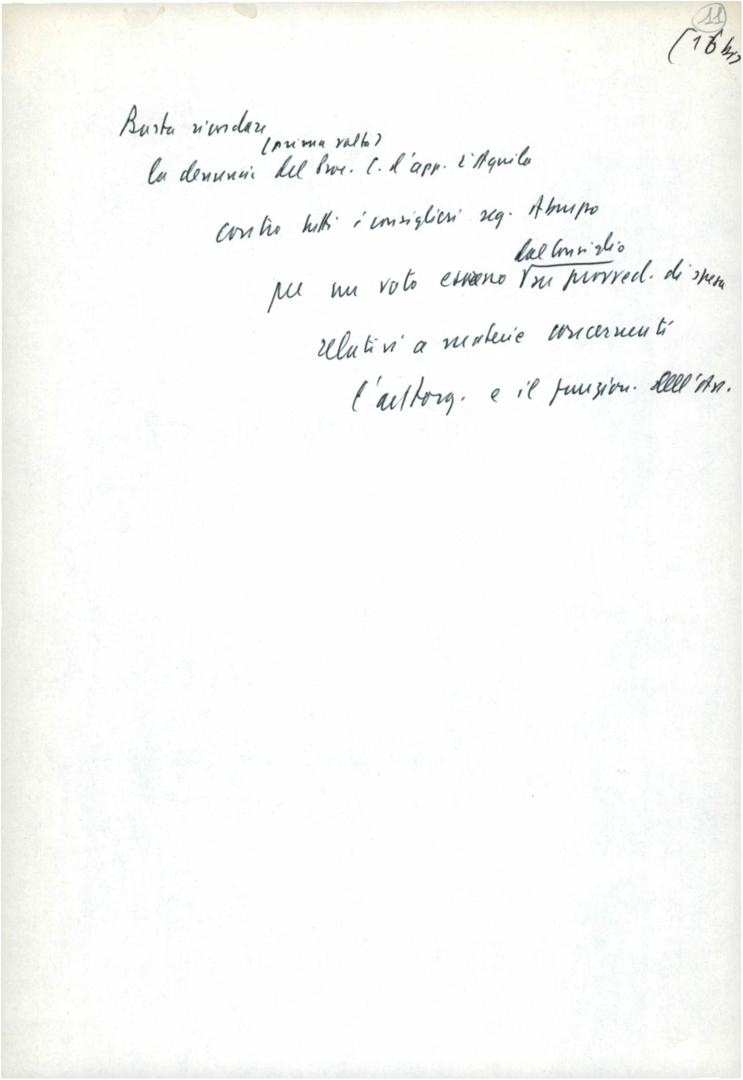 11
(16 bis
Basta ricordare
(prima volta)
la denuncia del Proc. C. d'app. L'Aquila
contro tutti i consiglieri reg. Abruzzo
dal Consiglio
per un voto espresso su provved. di spesa
relativi a materie concernenti
l'autorg. e il funzion. dell'Ass.